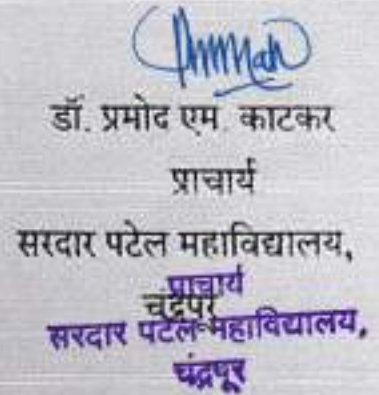 डॉ. प्रमोद एम. काटकर
प्राचार्य
सरदार पटेल महाविद्यालय,
चंद्रपूर
प्राचार्य
सरदार पटेल महाविद्यालय,
चंद्रपूर